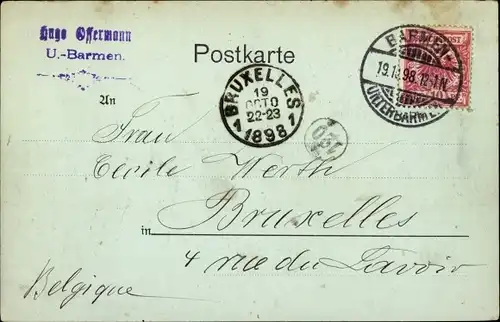 Hugo Offermann
U.-Barmen.
Postkarte
BARMEN
19.10.98. 12-1N.
UNTERBARMEN
POST
BRUXELLES
19
OCTO
22-23
1 1898 1
An
Frau
Cécile Werth
in Bruxelles
4 rue du Lavoir
Belgique